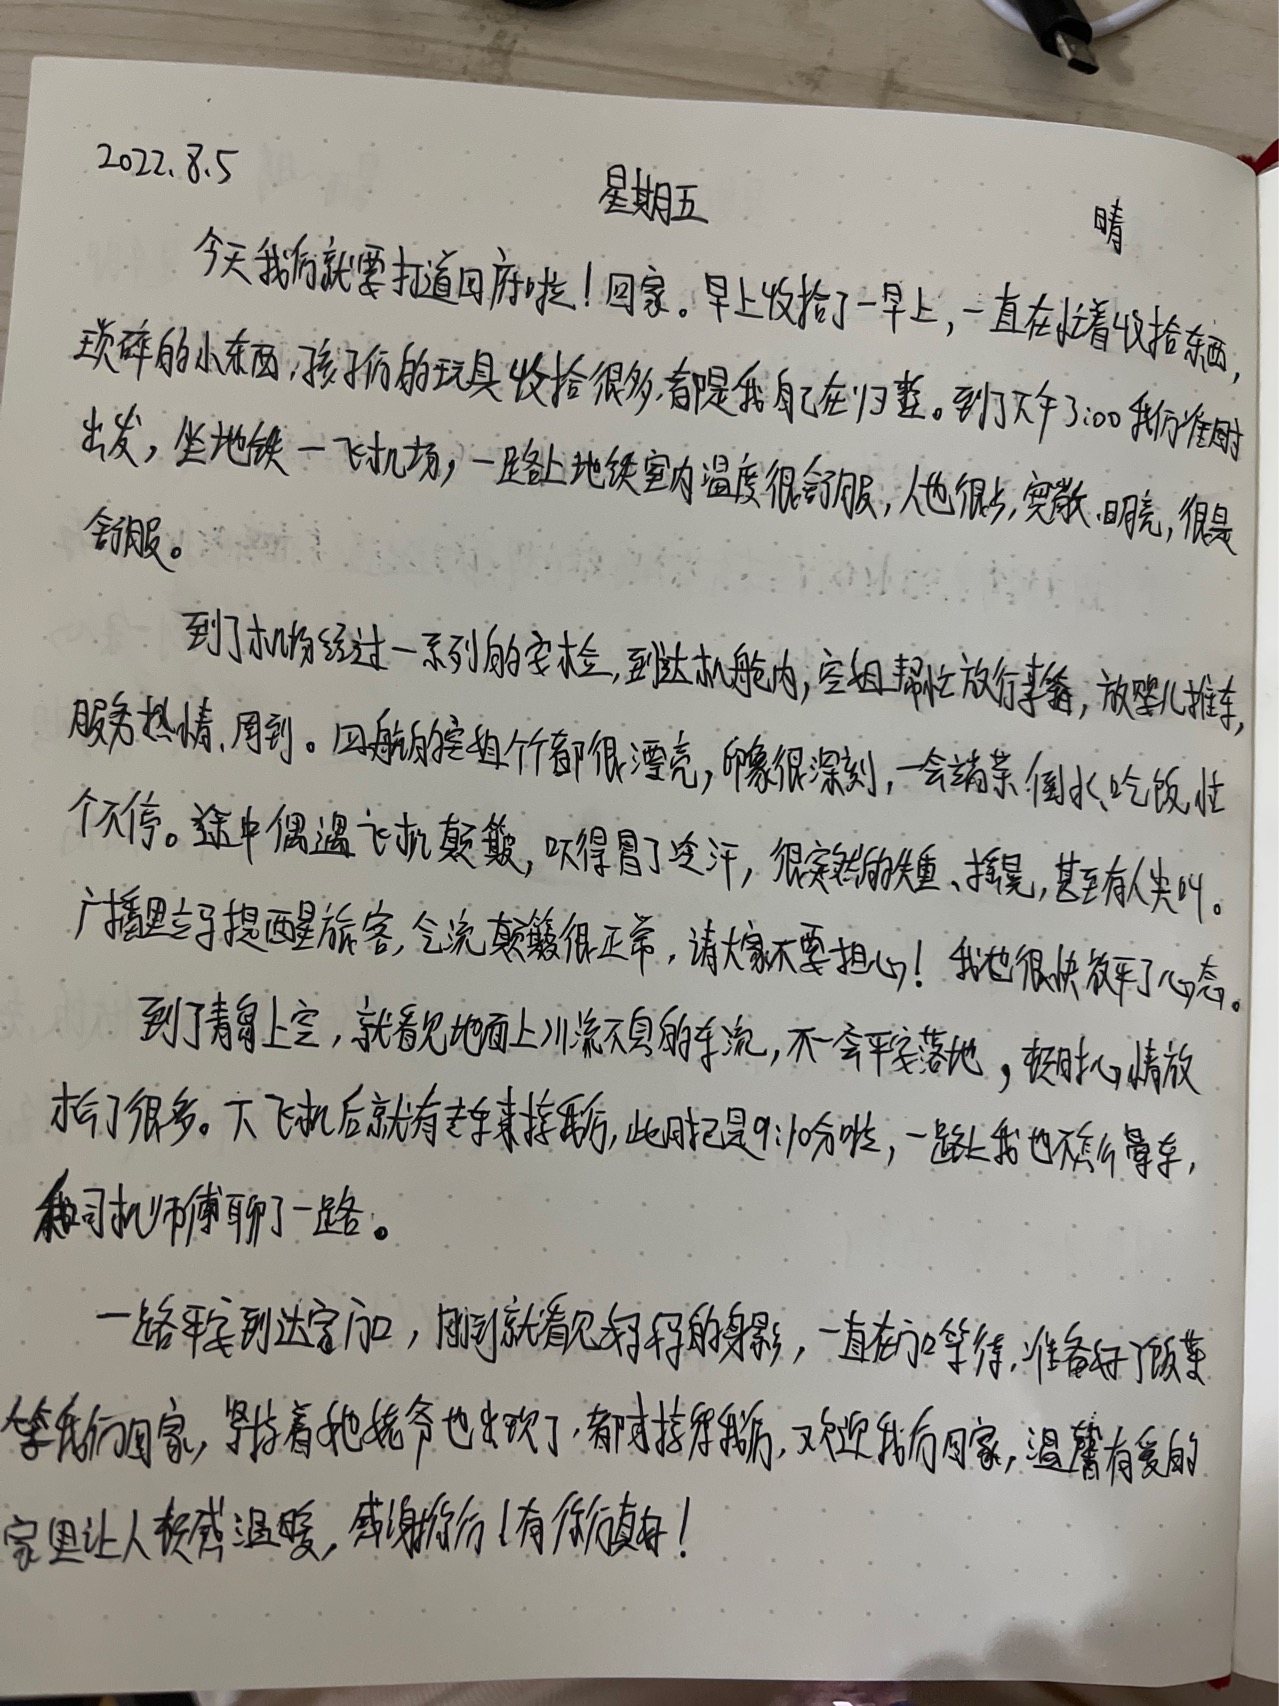 2022.8.5 星期五 晴
今天我们就要打道回府啦！回家。早上收拾了一早上，一直在忙着收拾东西，
琐碎的小东西，孩子们的玩具收拾很多，都是我自己在归整。到了下午3:00我们准时
出发，坐地铁一飞机场，一路上地铁室内温度很舒服，人也很少，宽敞、明亮，很是
舒服。
到了机场经过一系列的安检，到达机舱内，空姐帮忙放行李箱，放婴儿推车，
服务热情、周到。四航的空姐个个都很漂亮，印象很深刻，一会端菜、倒水、吃饭忙
个不停。途中偶遇飞机颠簸，吓得冒了冷汗，很突然的失重、摇晃，甚至有人尖叫。
广播里立马提醒旅客，气流颠簸很正常，请大家不要担心！我也很快放平了心态。
到了青岛上空，就看见地面上川流不息的车流，不一会平安落地，顿时心情放
松了很多。下飞机后就有专车来接我们，此时已是9:10分啦，一路上我也不怎么晕车，
和司机师傅聊了一路。
一路平安到达家门口，刚到就看见妈妈的身影，一直在门口等待，准备好了饭菜
等我们回家，紧接着她姥爷也出现了，都来接我们，欢迎我们回家，温馨有爱的
家里让人顿感温暖，感谢你们！有你们真好！